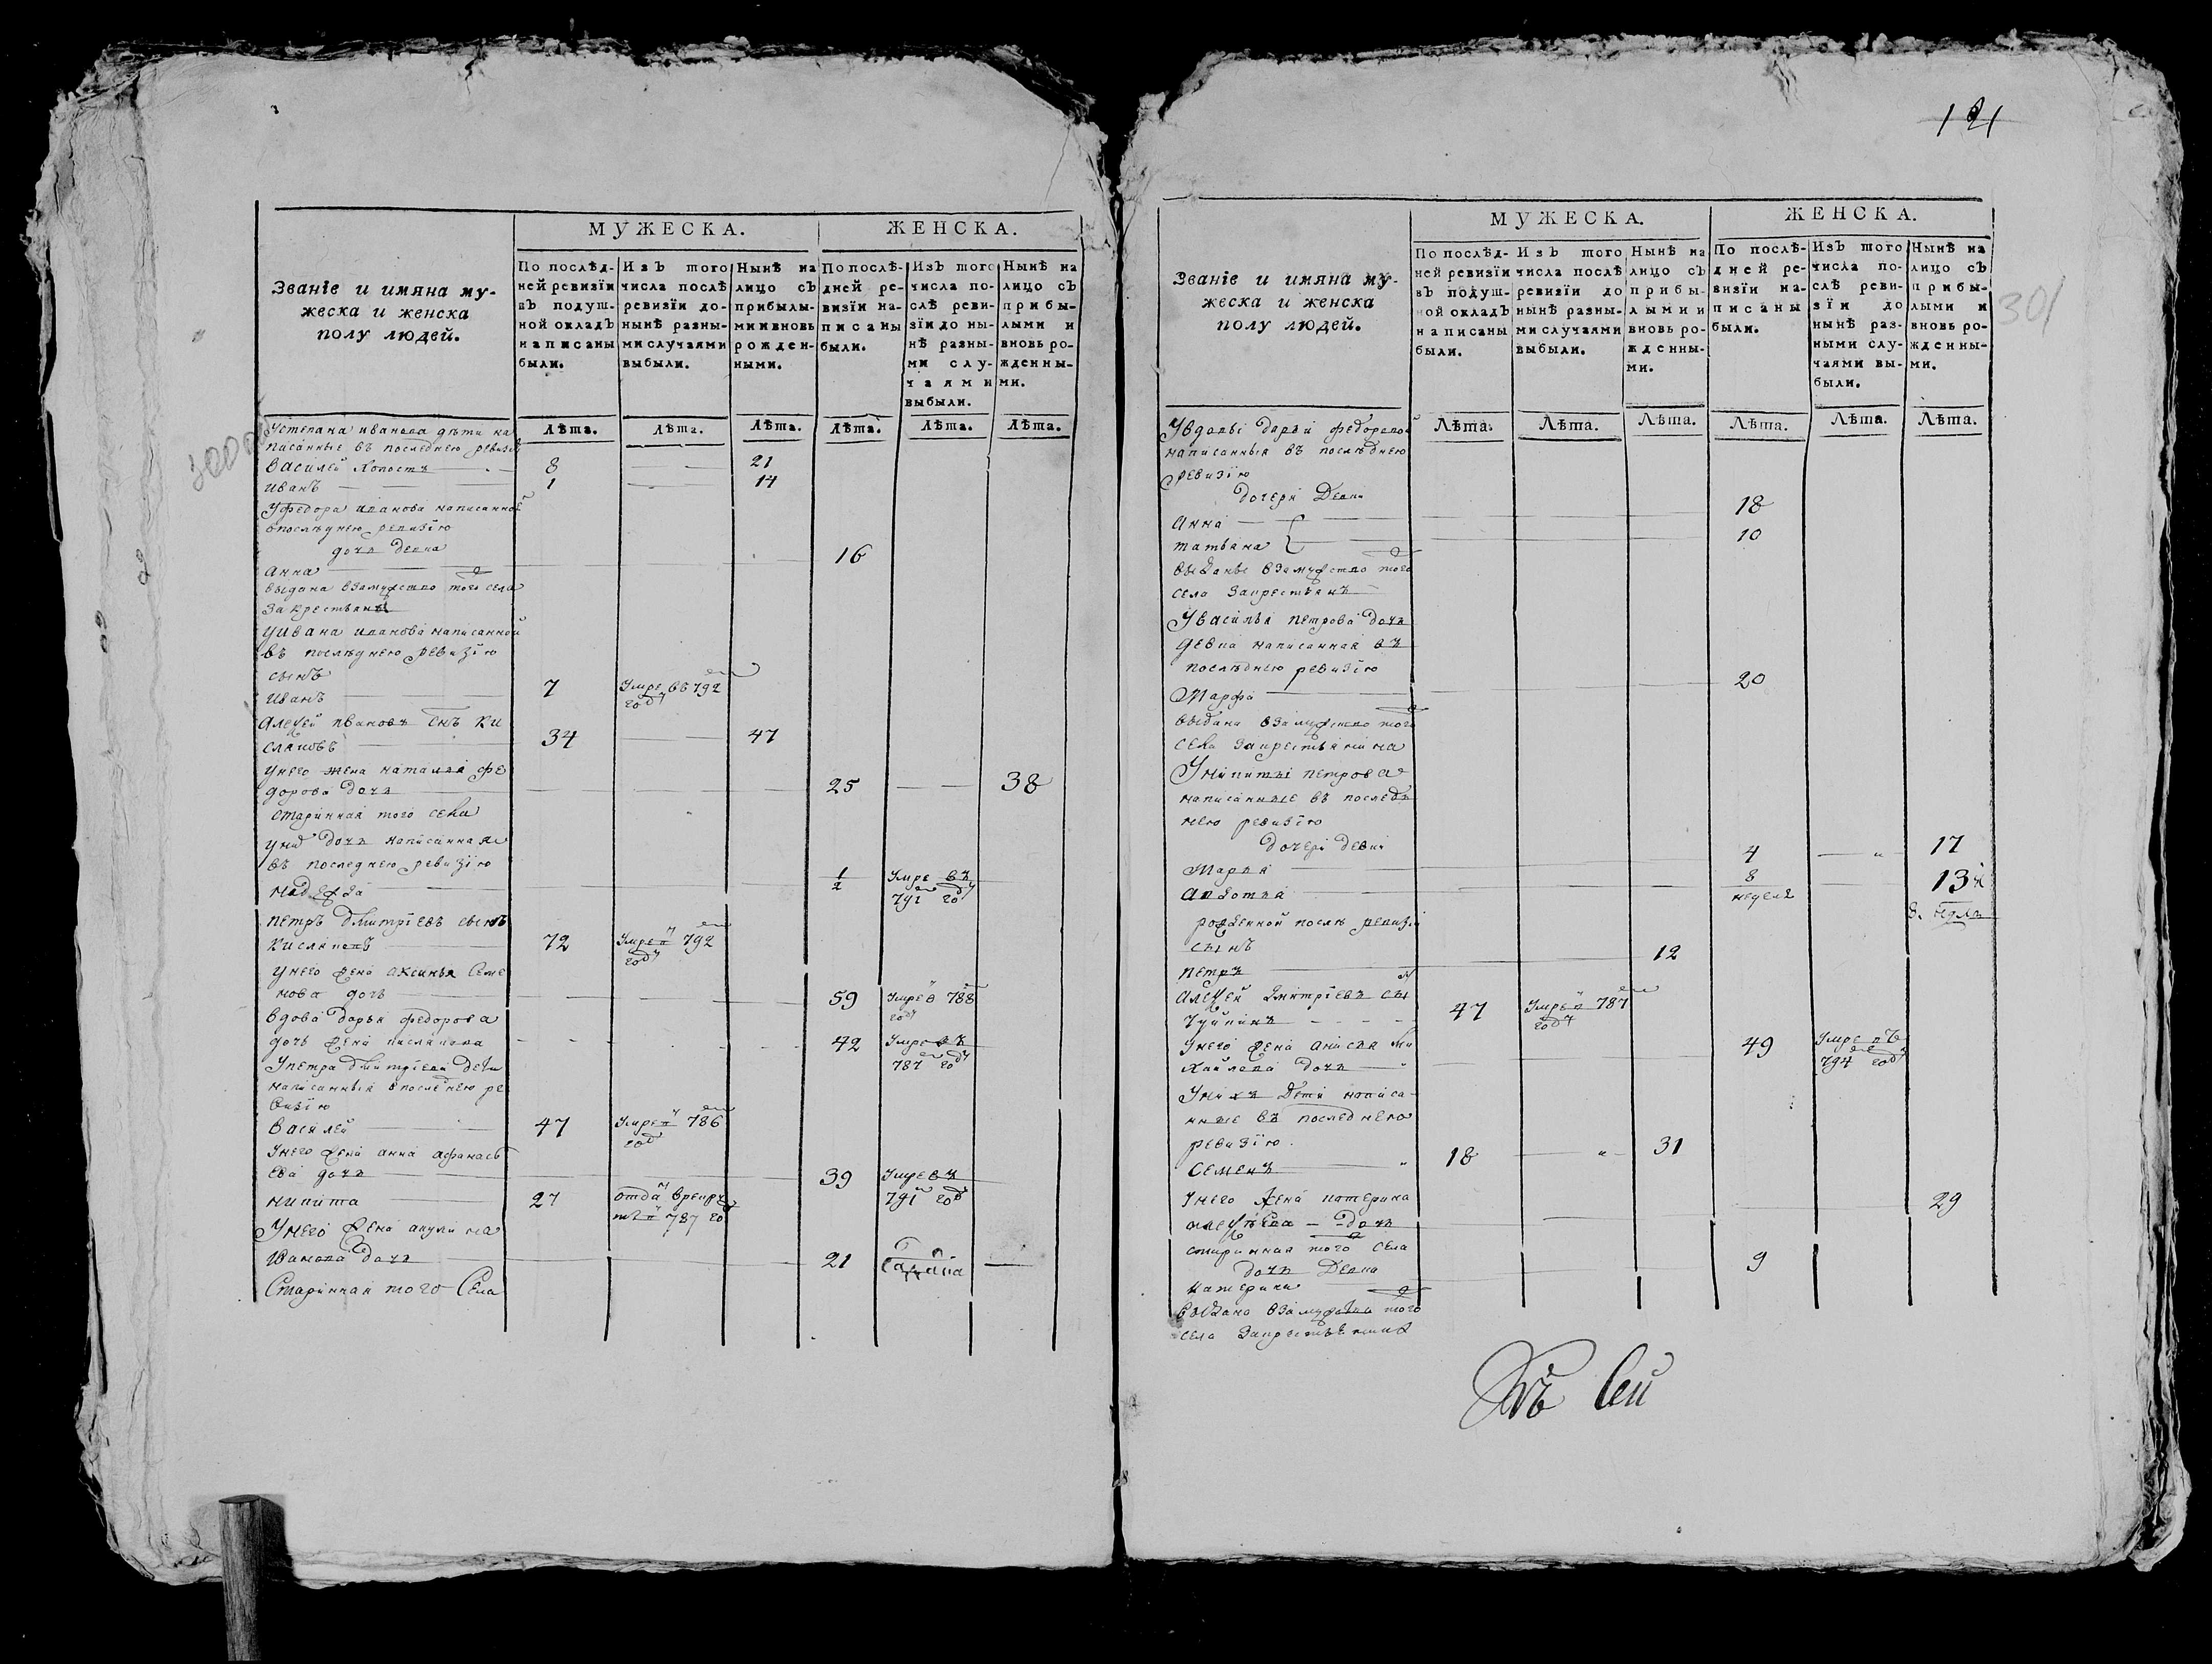 Званіе и имяна му-
жеска и женска
полу людей.
МУЖЕСКА.
ЖЕНСКА.
По послѣд-
ней ревизїи
въ подуш-
ной окладъ
написаны
были.
Изъ того
числа послѣ
ревизїи до-
нынѣ разны-
ми случаями
выбыли.
Нынѣ на
лицо съ
прибылы-
ми и вновь
рожден-
ными.
По послѣ-
дней ре-
визїи на-
писаны
были.
Изъ того
числа по-
слѣ реви-
зїи до ны-
нѣ разны-
ми слу-
чаями
выбыли.
Нынѣ на
лицо съ
прибы-
лыми и
вновь ро-
жденны-
ми.
Лѣта. Лѣта. Лѣта. Лѣта. Лѣта. Лѣта.
Устепана иванова дѣти на
писанные въ последнею ревизию
василей холостъ 8 21
иванъ 1 14
Уфедора иванова написанной
впослѣднею ревизїю
дочь девка
анна 16
выдана взамужство того села
за крестьянина
Уивана иванова написанной
въ послѣднею ревизїю
сынъ
иванъ 7 Умре въ 792 году
алексей ивановъ снъ ки
сляковъ 34 47
унего жена наталья фе
дорова дочь 25 38
старинная того села
уних дочь написанная
въ последнею ревизїю
надежда 1/2 Умре въ
791 году
петръ дмитрїевъ сынъ
кисляковъ 72 Умре в 792
году
унего жена аксинья семе
нова дочь 59 Умре в 788
году
вдова дарья федорова
дочь жена кислякова 42 Умре въ
787 году
Упетра дмитрїева дети
написанныя впоследнею ре
визїю
василей 47 Умре в 786
году
Унего жена анна афанась
ева дочь 39 Умре въ
791 году
никита 27 отдан врекру
ты в 787 го
Унего жена акулина
иванова дочь 21
Старинная того Села
121
301
Званіе и имяна му-
жеска и женска
полу людей.
МУЖЕСКА.
ЖЕНСКА.
По послѣд-
ней ревизїи
въ подуш-
ной окладъ
написаны
были.
Изъ того
числа послѣ
ревизїи до
нынѣ разны-
ми случаями
выбыли.
Нынѣ на
лицо съ
прибы-
лыми и
вновь ро-
жденны-
ми.
По послѣ-
дней ре-
визїи на-
писаны
были.
Изъ того
числа по-
слѣ реви-
зїи до
нынѣ раз-
ными слу-
чаями вы-
были.
Нынѣ на
лицо съ
прибы-
лыми и
вновь ро-
жденны-
ми.
Лѣта. Лѣта. Лѣта. Лѣта. Лѣта. Лѣта.
Увдовы дарьи федоровой
написанныя въ послѣднею
ревизїю
дочери девки
анна 18
татьяна 10
выданы взамужство того
села закрестьянъ
Увасилья петрова дочь
девка написанная въ
послѣднею ревизїю
Марфа 20
выдана взамужство того
села закрестьянина
Уникиты петрова
написанные въ последь
нею ревизїю
дочери девки
Марья 4 17
авдотья 8 недель 13
8. недел
рожденной послѣ ревизїи
сынъ
петръ 12
алексей дмитрїевъ сынъ
47 Умре в 787
году
Унего жена анисья ми
хайлова дочь 49 Умре въ
794 году
Уних дети написа
нные въ последнею
ревизїю.
семенъ 18 31
Унего жена катерина
алексѣева дочь 29
старинная того села
дочь девка
катерина 9
выдана взамужство того
села закрестьянина
Къ сей